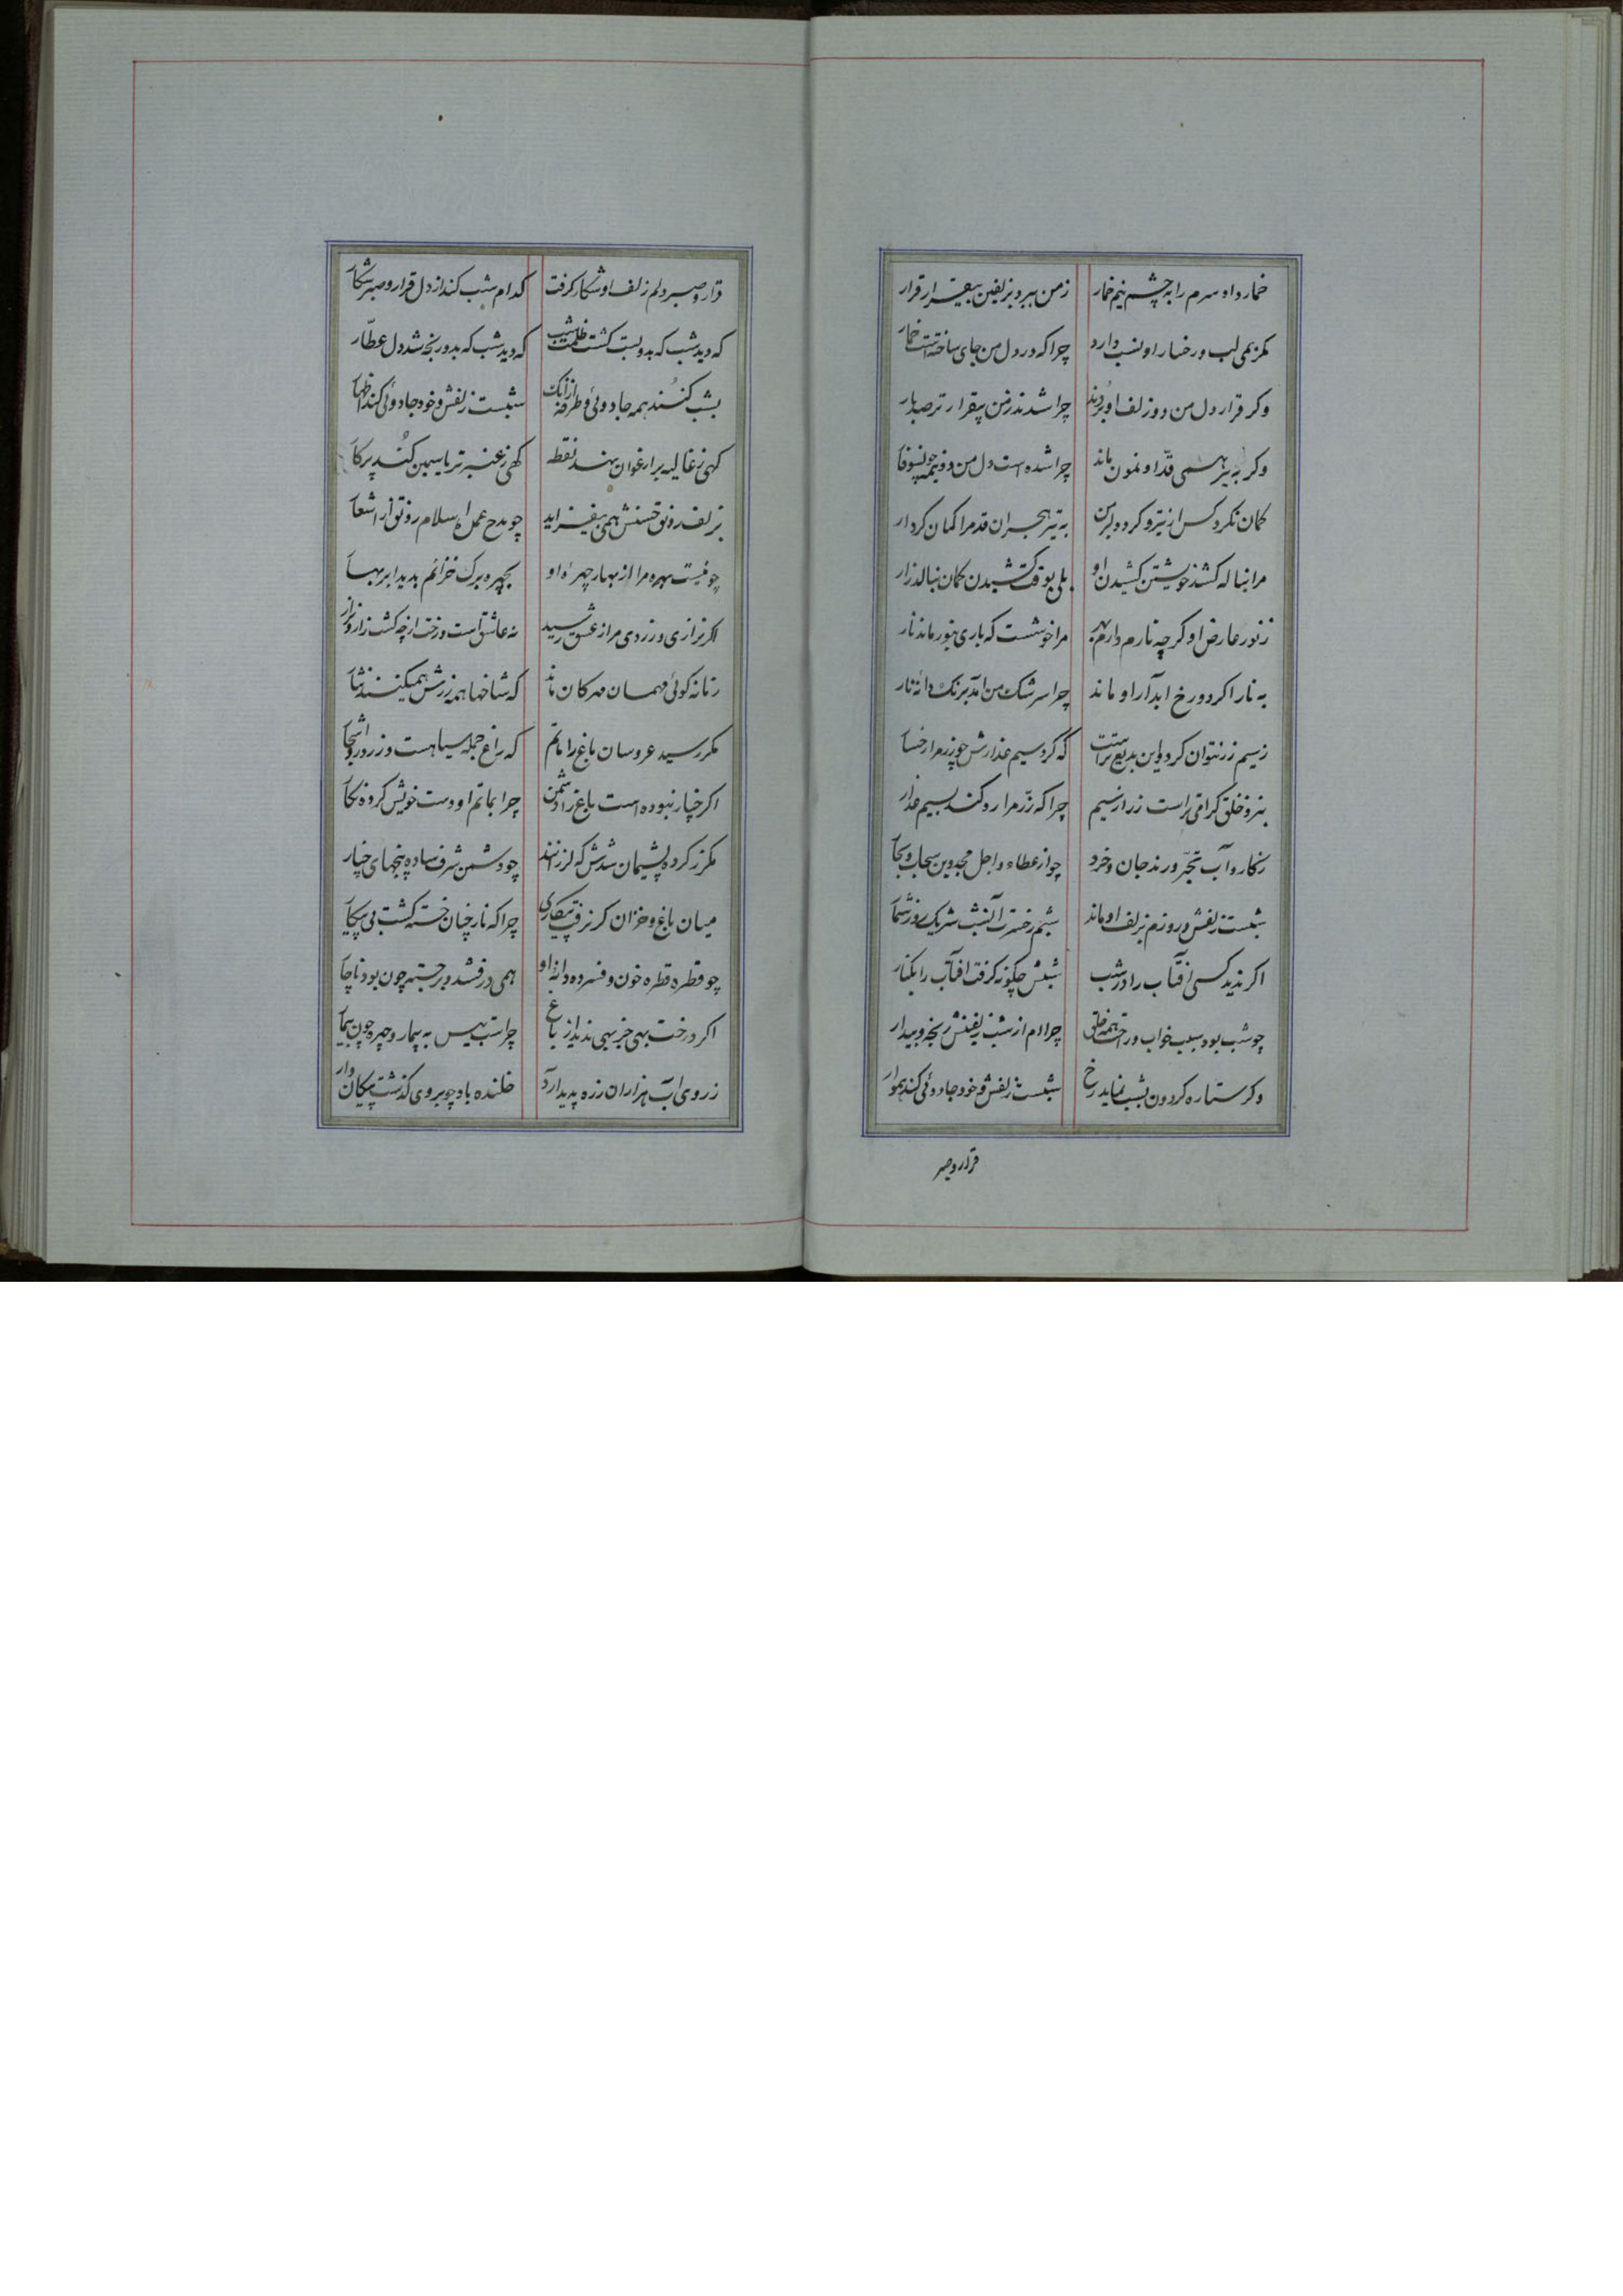 خمار داد سرم را به چشم نیم خمار زمن ببرد بزلفین بیقرار قرار
مکر بمی لب و رخسار او نسب دارد چرا که در دل من جای ساخته است خمار
وکر قرار دل من دو زلف او بردند چرا شدند زمن بیقرارتر صد بار
وکر به تیر همی قد او نمون ماند چرا شده است دل من دو نیمه چون سوفار
کمان نکرد کس از تیر و کرد دلبر من به تیر هجران قد مرا کمان کردار
مرا بناله کشد خویشتن کشیدن او بلی بوقت کشیدن کمان بنالد زار
ز نور عارض او کرچه نارم دارم بهره مرا خوشست که باری بنور ماند نار
به نار اکر دو رخ آبدار او ماند چرا سرشک من آمد برنک دانه نار
ز سیم زر نتوان کرد و این بدیع تر است که کرد سیم عذارش چو زر مرا رخسار
بنزد خلق کرامی تر است زر از سیم چرا که زر مرا رد کند بسیم عذار
ز کار و آب تحیر ورند جان و خرد چو از عطاء و اجل مجد دین سحاب و بحار
شبست زلفش و روزم بزلف او ماند شبم ز حسرت آنشب شریک روز شمار
اکر ندید کسی آفتاب را در شب شبش چکونه کرفت آفتاب را بکنار
چو شب بود سبب خواب و راحت همه خلق چرا دلم از شب زلفینش رنجه و بیدار
وکر ستاره کردون بشب نماید رخ شبست زلفش و خود جادوئی کند هموار
قرار و صبر
قرار و صبر دلم زلف او شکار کرفت کدام شب کند از دل قرار و صبر شکار
که دید شب که بدو بست کشت ظلمت شب که دید شب که بدو رنجه شد دل عطار
بشب کنند همه جادوئی و طرفه از آنک شبست زلفش و خود جادوئی کند اظهار
کهی ز غالیه بر ارغوان نهد نقطه کهی ز عنبر تر یاسمین کند پرکار
بزلف رونق حسنش همی بیفزاید چو مدح عمل اسلام رونق از اشعار
چو نیست بهره مرا از بهار چهره او بچهره برک خزانم بدیده ابر بهار
اکر نزاری و زردی مرا ز عشق رسید نه عاشق است درخت از چه کشت زار و نزار
زمانه کوئی مهمان مهرکان ماند که شاخها همه زرش همیکنند نثار
مکر رسید عروسان باغ را ماتم که راغ جمله سیاهست و زرد رو اشجار
اکر خیار نبوده است باغ را دشمن چرا بماتم او دست خویش کرده نکار
مکر ز کرده پشیمان شدش که لرزانند چو دشمن شرف ساده پنجهای چنار
میان باغ و خزان کر نرفت پیکاری چرا که نار چنان خسته کشت بی پیکار
چو قطره قطره خون و فسرده دانه او همی درفشد و برجسته چون بود ناچار
اکر درخت بهی خیر بهی ندید از باغ چراست پیس به بیمار و چهره چون بیمار
ز روی آب هزاران زره پدید آرد خلنده باد چو بر وی کذشت پیکان وار